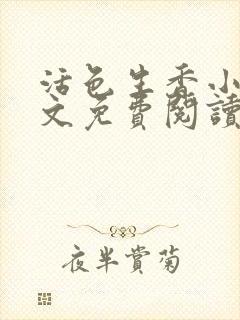 活色生香小
文免費閱讀
夜半賞菊